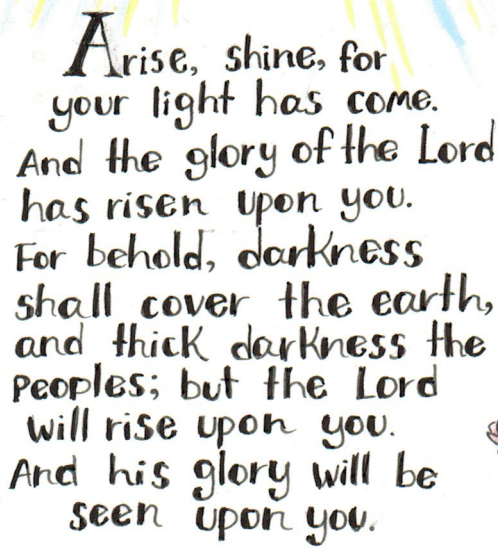 Arise, shine, for
your light has come.
And the glory of the Lord
has risen upon you.
For behold, darkness
shall cover the earth,
and thick darkness the
peoples; but the Lord
will rise upon you.
And his glory will be
seen upon you.